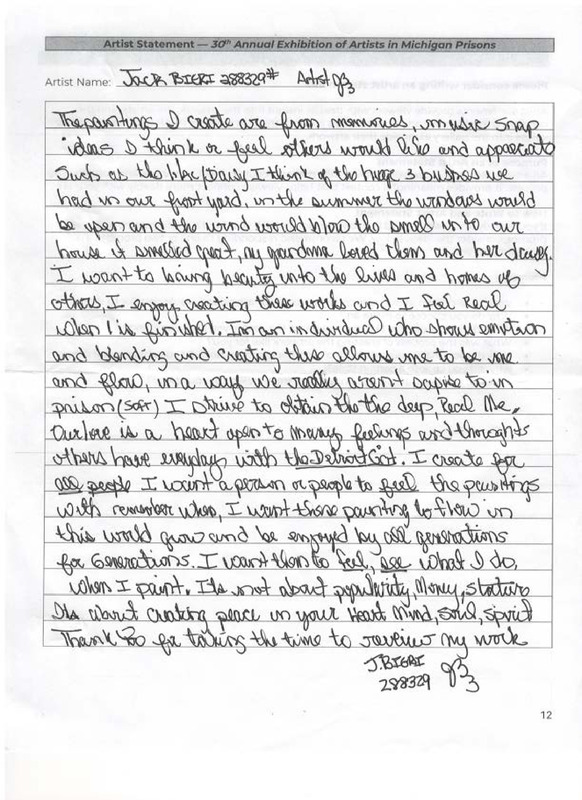 Artist Statement — 30th Annual Exhibition of Artists in Michigan Prisons
Artist Name: JACK BIERI 288329# Artist
The paintings I create are from memories, music snap
ideas I think or feel others would like and appreciate
Such as the lilac/Daisy I think of the huge 3 bushes we
had in our front yard, in the summer the windows would
be open and the wind would blow the smell into our
house it smelled great, my grandma loved them and her daisy.
I want to bring beauty into the lives and homes of
others, I enjoy creating these works and I feel Real
when 1 is finished. Im an individual who shows emotion
and blending and creating this allows me to be me
and flow, in a way we really arent to in
prison (soft) I strive to obtain the the deep, Real Me.
is a heart open to many feelings and thoughts
others have everyday with the Detroit . I create for
all people I want a person or people to feel the paintings
with remember when, I want these painting to flow in
this world grow and be enjoyed by all generations
for Generations. I want them to feel, see what I do,
when I paint. Its not about popularity, Money,
Its about creating peace in your Heart Mind, soul, spirit
Thank for taking the time to review my work
J. BIERI
288329
12